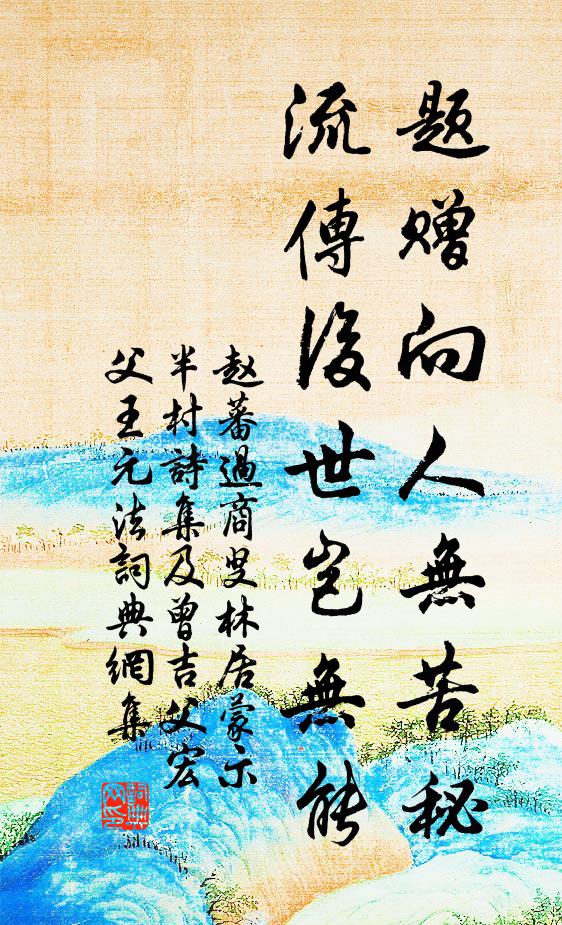 題贈向人無苦秘
流傳後世豈無能
赵蕃過商叟林居蒙示
半村詩集及曾吉父宏
父王元法詞典網集